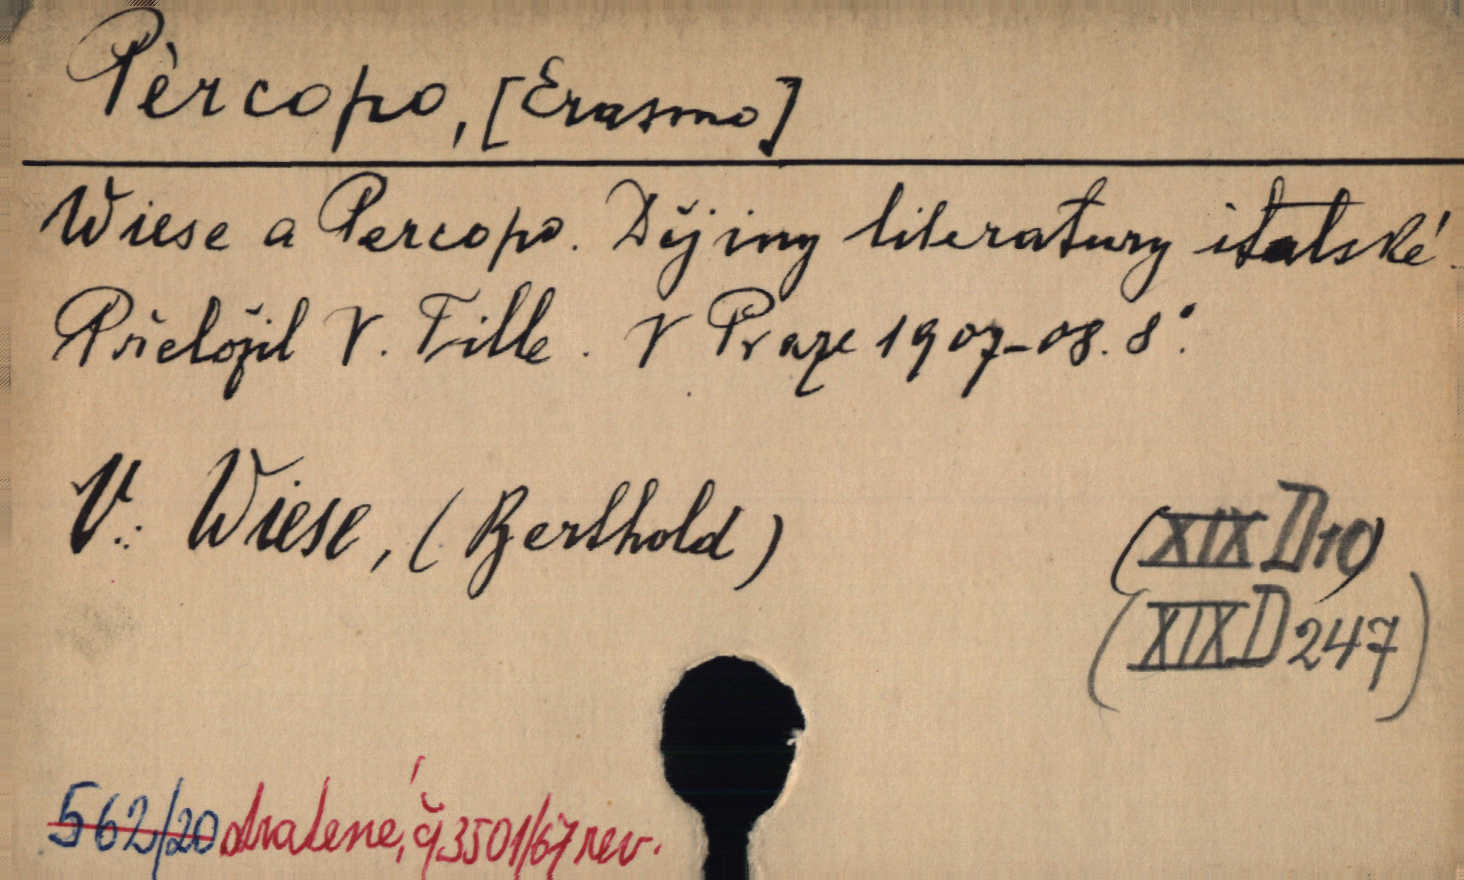 Pèrcopo, [Erasmo]
Wiese a Percopo. Dějiny literatury italské.
Přeložil V. Tille. V Praze 1907-08. 8°.
V.: Wiese, (Berthold)
(XIX D 10)
(XIX D 247)
562/20 ztratené, č 3501/67 rev.